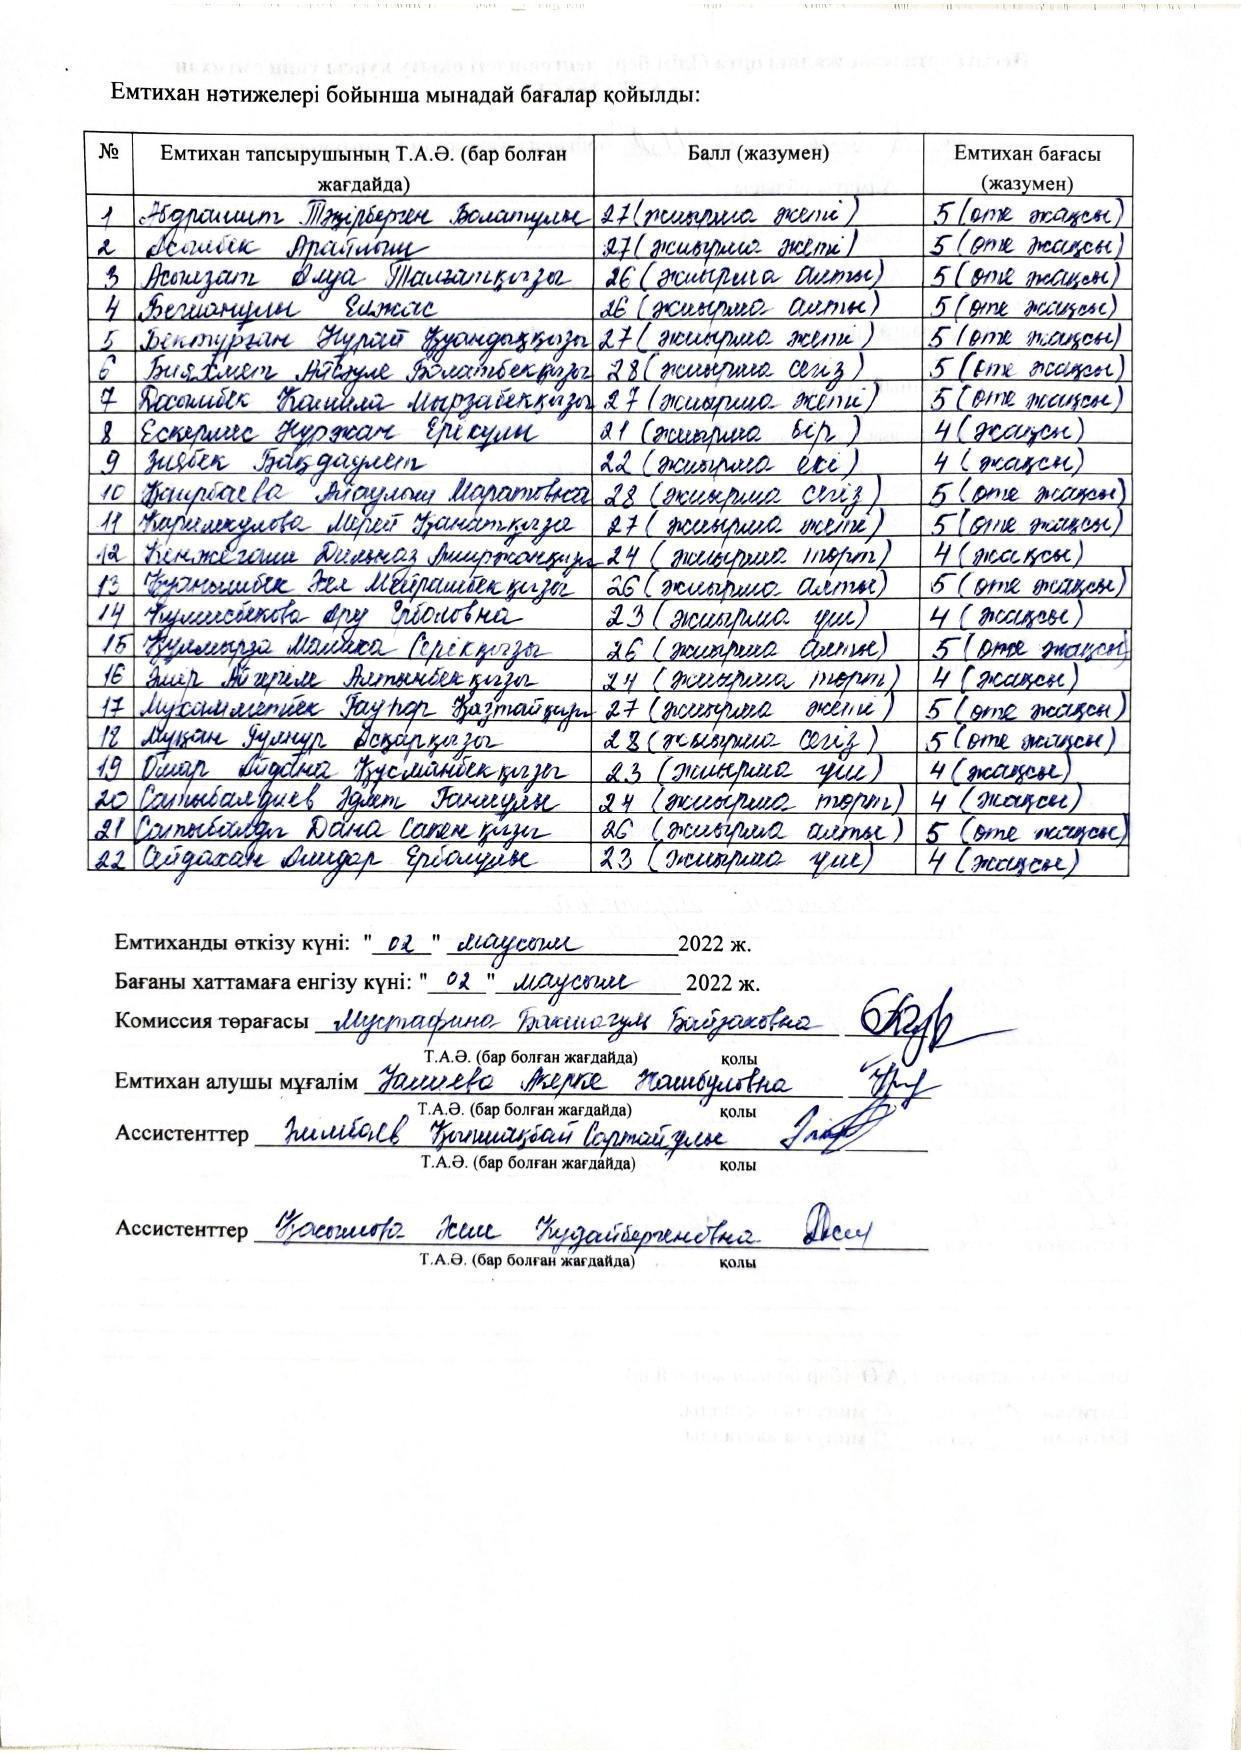 Емтихан нәтижелері бойынша мынадай бағалар қойылды:
№ Емтихан тапсырушының Т.А.Ә. (бар болған жағдайда) Балл (жазумен) Емтихан бағасы (жазумен)
1 Абдрашит Тәңірберген Болатұлы 27 (жиырма жеті) 5 (өте жақсы)
2 Асылбек Арайлым 27 (жиырма жеті) 5 (өте жақсы)
3 Асылзат Алуа Талғатқызы 26 (жиырма алты) 5 (өте жақсы)
4 Бегманұлы Елжас 26 (жиырма алты) 5 (өте жақсы)
5 Бектұрған Нұрай Қуандыққызы 27 (жиырма жеті) 5 (өте жақсы)
6 Бияхмет Айсәуле Болатбекқызы 28 (жиырма сегіз) 5 (өте жақсы)
7 Қамила Мырзабекқызы 27 (жиырма жеті) 5 (өте жақсы)
8 Ескермес Нұржан Ерікұлы 21 (жиырма бір) 4 (жақсы)
9 Зиябек Бақдаулет 22 (жиырма екі) 4 (жақсы)
10 Қаирбаева Айаулым Маратовна 28 (жиырма сегіз) 5 (өте жақсы)
11 Каримкулова Мерей Қанатқызы 27 (жиырма жеті) 5 (өте жақсы)
12 Кенжеғали Дильназ 24 (жиырма төрт) 4 (жақсы)
13 Қуанышбек Әсел Мейрамбекқызы 26 (жиырма алты) 5 (өте жақсы)
14 Кумисбекова Ару Ерболовна 23 (жиырма үш) 4 (жақсы)
15 Құлмырза Малика Серікқызы 26 (жиырма алты) 5 (өте жақсы)
16 Әмір Айгерім Алтынбекқызы 24 (жиырма төрт) 4 (жақсы)
17 Мухамметбек Гауһар Қазтайқызы 27 (жиырма жеті) 5 (өте жақсы)
18 Мұқан Гүлнұр Асқарқызы 28 (жиырма сегіз) 5 (өте жақсы)
19 Омар Айдана Құсманбекқызы 23 (жиырма үш) 4 (жақсы)
20 Сатыбалдиев Әділет Ғаниұлы 24 (жиырма төрт) 4 (жақсы)
21 Сатыбалды Дана Сакенқызы 26 (жиырма алты) 5 (өте жақсы)
22 Сайдахан Алидар Ерболұлы 23 (жиырма үш) 4 (жақсы)
Емтиханды өткізу күні: "02" маусым 2022 ж.
Бағаны хаттамаға енгізу күні: "02" маусым 2022 ж.
Комиссия төрағасы Мустафина Бакшагуль Байзаковна
Т.А.Ә. (бар болған жағдайда) қолы
Емтихан алушы мұғалім Уалиева Акерке
Т.А.Ә. (бар болған жағдайда) қолы
Ассистенттер Әлимбаев Қыпшақбай Сартайұлы
Т.А.Ә. (бар болған жағдайда) қолы
Ассистенттер Қасымова Әсем Кудайбергеновна
Т.А.Ә. (бар болған жағдайда) қолы